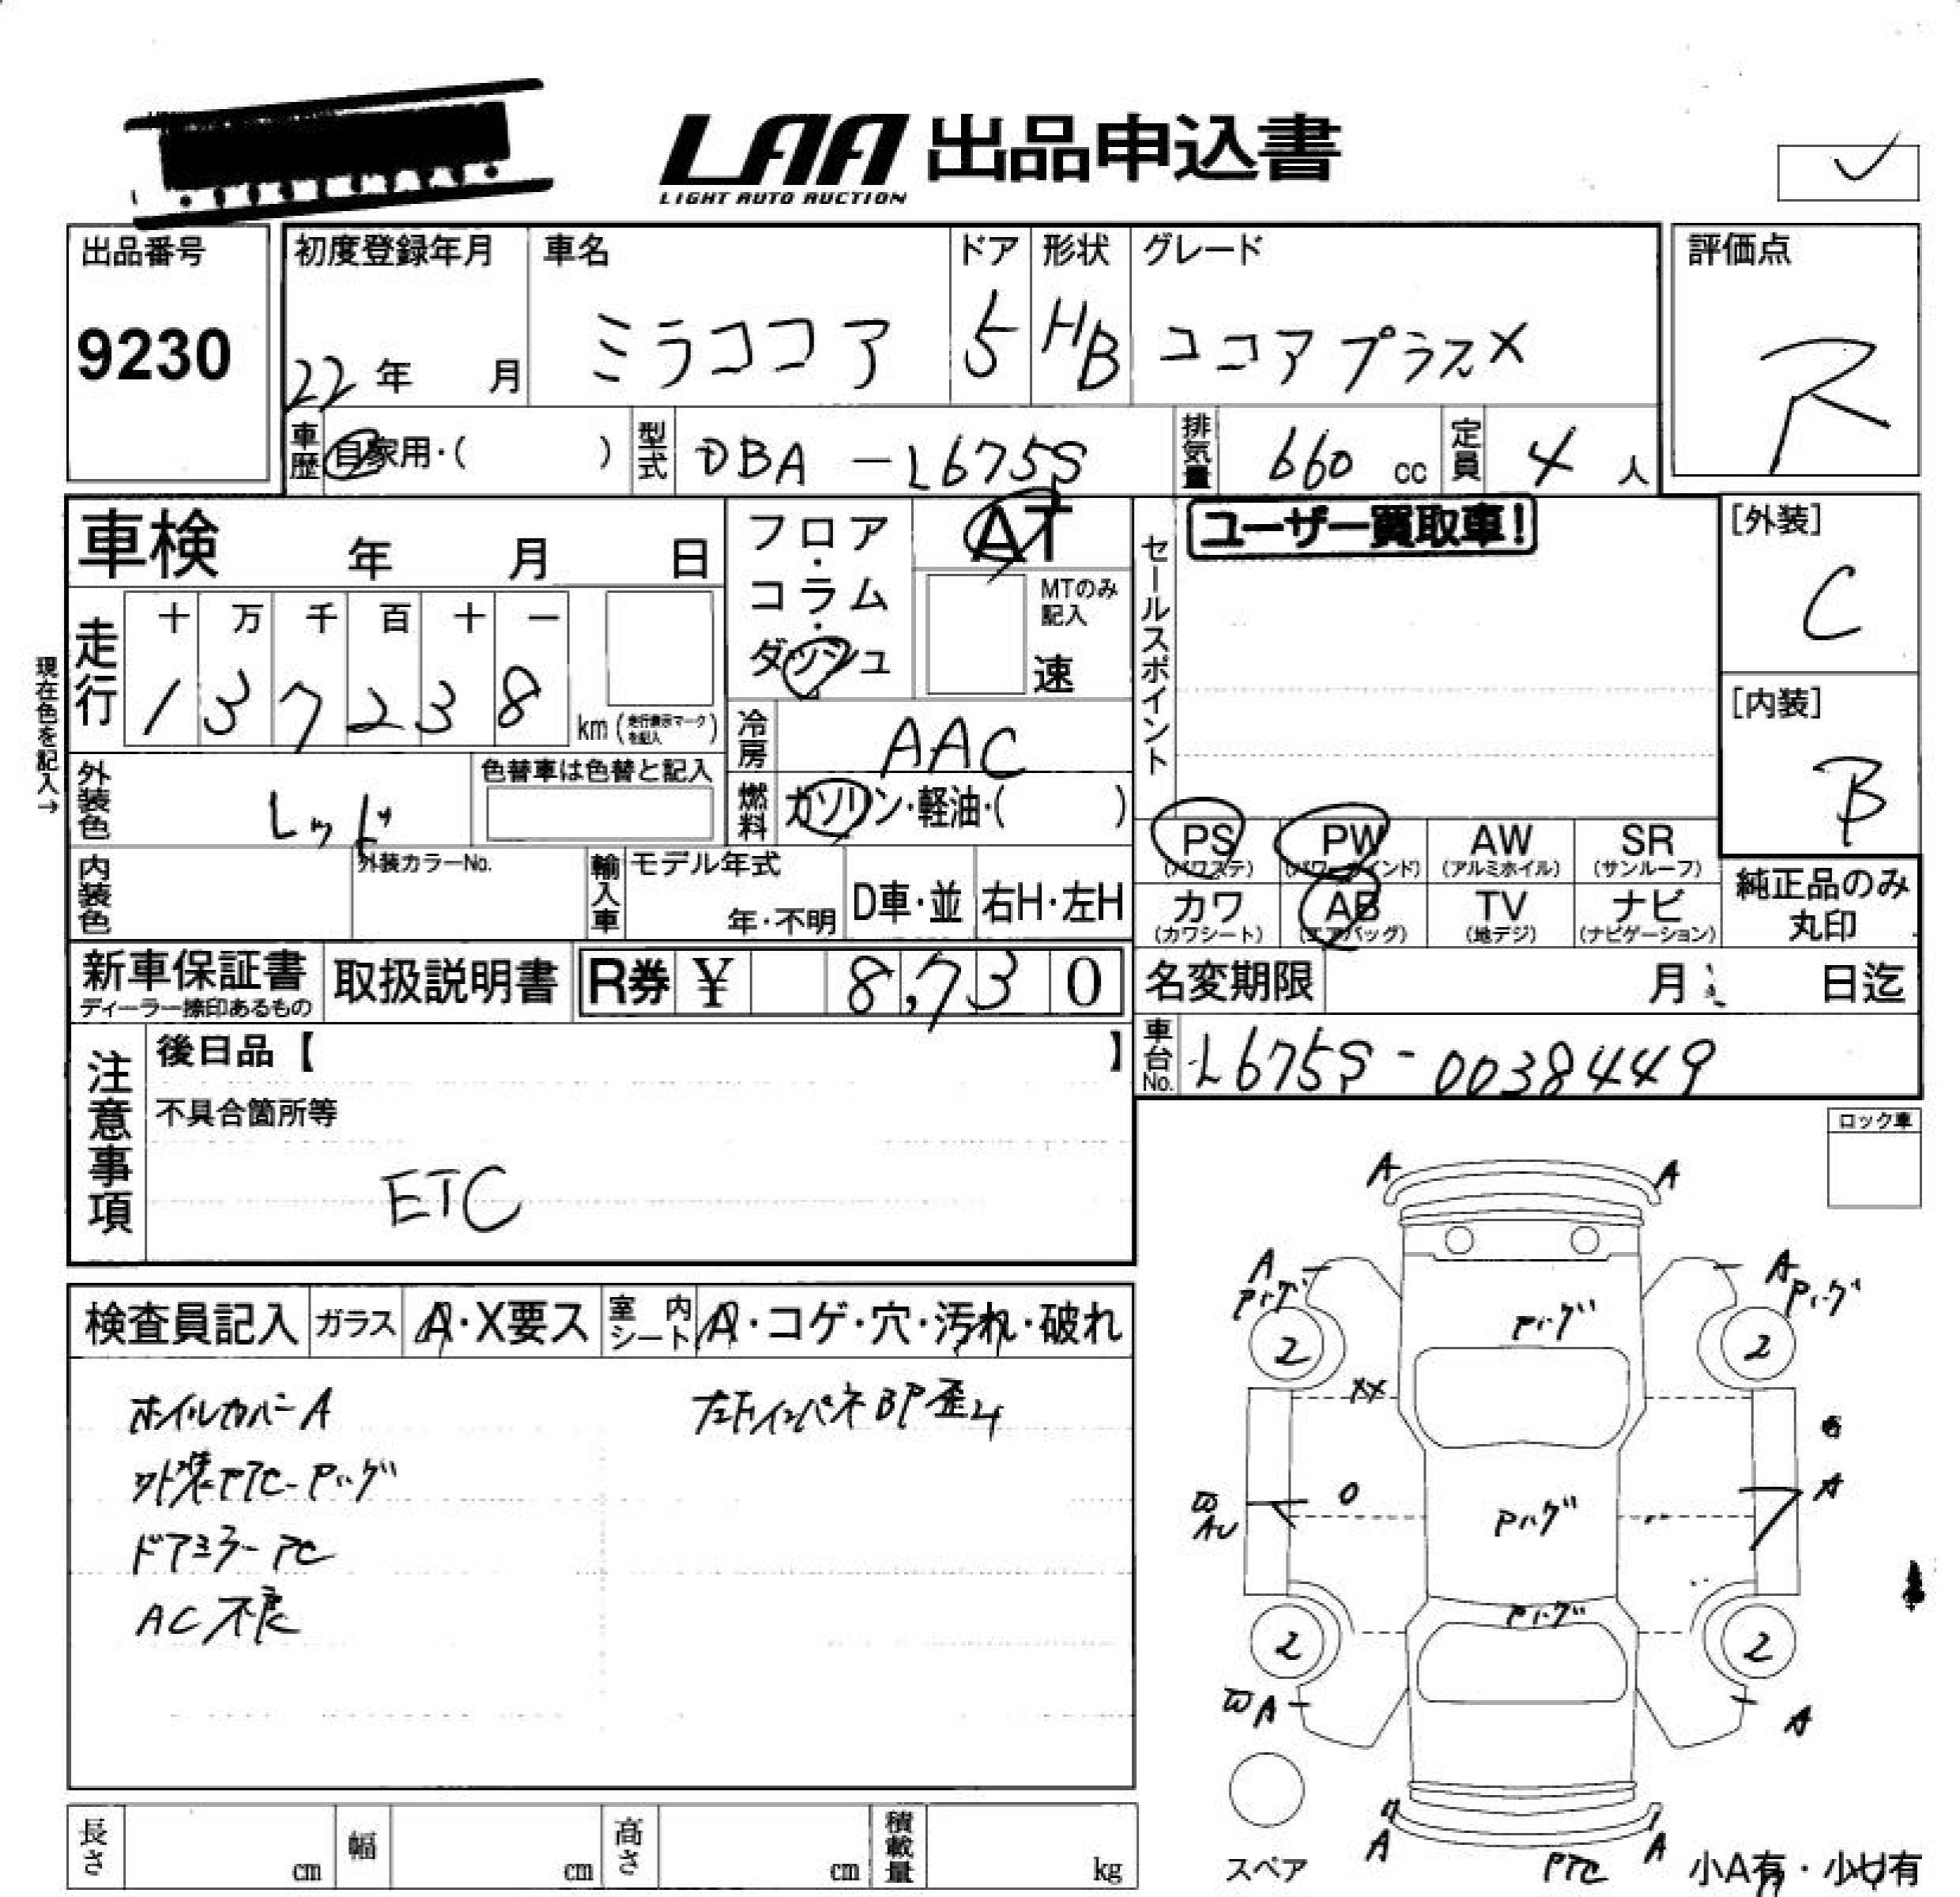 LAA 出品申込書
LIGHT AUTO AUCTION
出品番号
9230
初度登録年月
22年 月
車名
ミラココア
ドア
5
形状
HB
グレード
ココアプラスX
評価点
R
車歴 自家用・( )
型式 DBA-L675S
排気量 660 cc
定員 4 人
車検 年 月 日
フロア・コラム・ダッシュ
AT
MTのみ記入
速
セールスポイント
ユーザー買取車!
[外装]
C
[内装]
B
現在色を記入→
走行
十 万 千 百 十 一
1 3 7 2 3 8
km(走行表示マークを記入)
冷房 AAC
外装色 レッド
色替車は色替と記入
燃料 ガソリン・軽油・( )
PS (パワステ)
PW (パワーウインド)
AW (アルミホイル)
SR (サンルーフ)
内装色
外装カラーNo.
輸入車
モデル年式
年・不明
D車・並
右H・左H
カワ (カワシート)
AB (エアバッグ)
TV (地デジ)
ナビ (ナビゲーション)
純正品のみ丸印
新車保証書
ディーラー捺印あるもの
取扱説明書
R券 ¥ 8,730
名変期限 月 日迄
注意事項
後日品【 】
不具合箇所等
ETC
車台No. L675S-0038449
ロック車
検査員記入
ガラス A・X要ス
室内シート A・コゲ・穴・汚れ・破れ
ホイルカバーA
外装PTC-Pハゲ
ドアミラーPC
AC不良
左下インパネBP歪み
A A
A Pハゲ
A Pハゲ
Pハゲ
2 2
XX
A
O
Pハゲ
Pハゲ
2 2
A
A
A A
PTC
スペア
小A有・小U有
長さ cm
幅 cm
高さ cm
積載量 kg